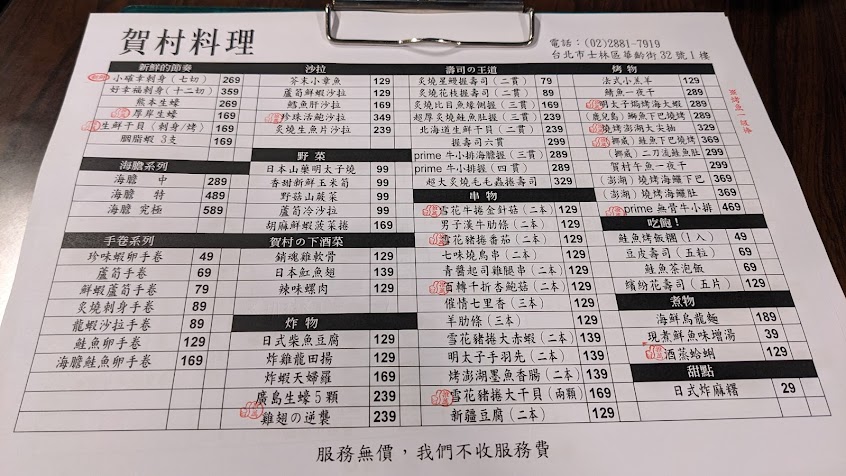 賀村料理
電話：(02)2881-7919
台北市士林區華齡街32號1樓
新鮮的節奏
小確幸刺身（七切） 269
好幸福刺身（十二切） 359
熊本生蠔 269
厚岸生蠔 169
生鮮干貝（刺身/烤） 269
胭脂蝦 3支 169
海膽系列
海膽 中 289
海膽 特 489
海膽 究極 589
手卷系列
珍味蝦卵手卷 49
蘆筍手卷 69
鮮蝦蘆筍手卷 79
炙燒刺身手卷 89
龍蝦沙拉手卷 89
鮭魚卵手卷 129
海膽鮭魚卵手卷 169
沙拉
芥末小章魚 129
蘆筍鮮蝦沙拉 129
鱈魚肝沙拉 169
珍珠活鮑沙拉 349
炙燒生魚片沙拉 249
野菜
日本山藥明太子燒 99
香甜新鮮玉米筍 99
野菇山蔬菜 99
蘆筍冷沙拉 99
胡麻鮮蝦菠菜捲 169
賀村の下酒菜
銷魂雞軟骨 129
日本魟魚翅 139
辣味螺肉 129
炸物
日式柴魚豆腐 129
炸雞龍田揚 129
炸蝦天婦羅 169
廣島生蠔5顆 239
雞翅の逆襲 239
壽司の王道
炙燒星鰻握壽司（二貫） 79
炙燒花枝握壽司（二貫） 89
炙燒比目魚緣側握（三貫） 169
超厚炙燒鮭魚肚握（三貫） 219
北海道生鮮干貝（二貫） 119
握壽司六貫 299
prime 牛小排海膽握（三貫） 289
prime 牛小排握（四貫） 289
超大炙燒毛毛蟲捲壽司 329
串物
雪花牛捲金針菇（二本） 129
男子漢牛肋條（二本） 129
雪花豬捲番茄（二本） 129
七味燒鳥串（二本） 129
青醬起司雞腿串（二本） 129
百轉千折杏鮑菇（二本） 129
催情七里香（三本） 129
羊肋條（三本） 129
雪花豬捲大赤蝦（二本） 139
明太子手羽先（二本） 139
烤澎湖墨魚香腸（二本） 139
雪花豬捲大干貝（兩顆） 169
新疆豆腐（二本） 129
烤物
法式小羔羊 129
鯖魚一夜干 289
明太子焗烤海大蝦 289
（鹿兒島）鰤魚下巴燒烤 289
燒烤澎湖大尖抽 329
（挪威）鮭魚下巴燒烤 369
（挪威）二刀流鮭魚肚 299
賀村午魚一夜干 299
（澎湖）燒烤海鱺下巴 369
（澎湖）燒烤海鱺肚 369
prime 無骨牛小排 469
吃飽！
鮭魚烤飯糰（1入） 49
豆皮壽司（五粒） 69
鮭魚茶泡飯 69
繽紛花壽司（五片） 129
煮物
海鮮烏龍麵 189
現煮鮮魚味增湯 39
酒蒸蛤蜊 129
甜點
日式炸麻糬 29
服務無價，我們不收服務費